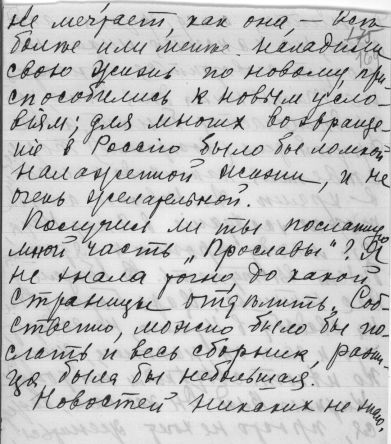 не мечтает, как она, — Все
более или менее наладили
свою жизнь по новому, при-
способились к новым усло-
віям; для многих возвраще-
ніе в Россію было бы ломкой
налаженной жизни, и не
очень желательной.
Получил ли ты посланную
мной часть „Прославы"? Я
не знала точно, до какой
страницы отдѣлить. Соб-
ственно, можно было бы по-
слать и весь сборник, разни-
ца была бы небольшая.
Новостей никаких не знаю,